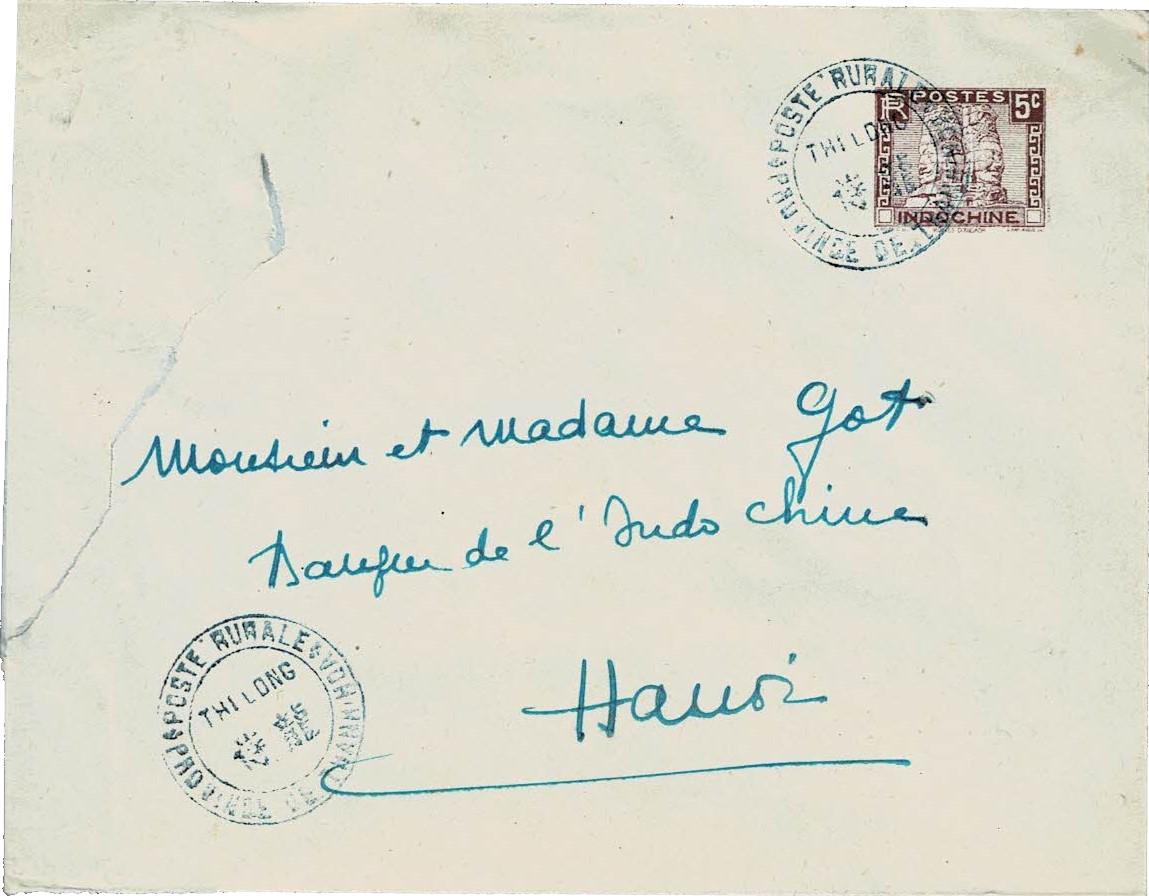 POSTE RURALE
PROVINCE DE
THI LONG
RF POSTES 5c
INDOCHINE
Monsieur et Madame Got
Banque de l'Indo chine
Hanoi
POSTE RURALE
PROVINCE DE THANH HOA
THI LONG